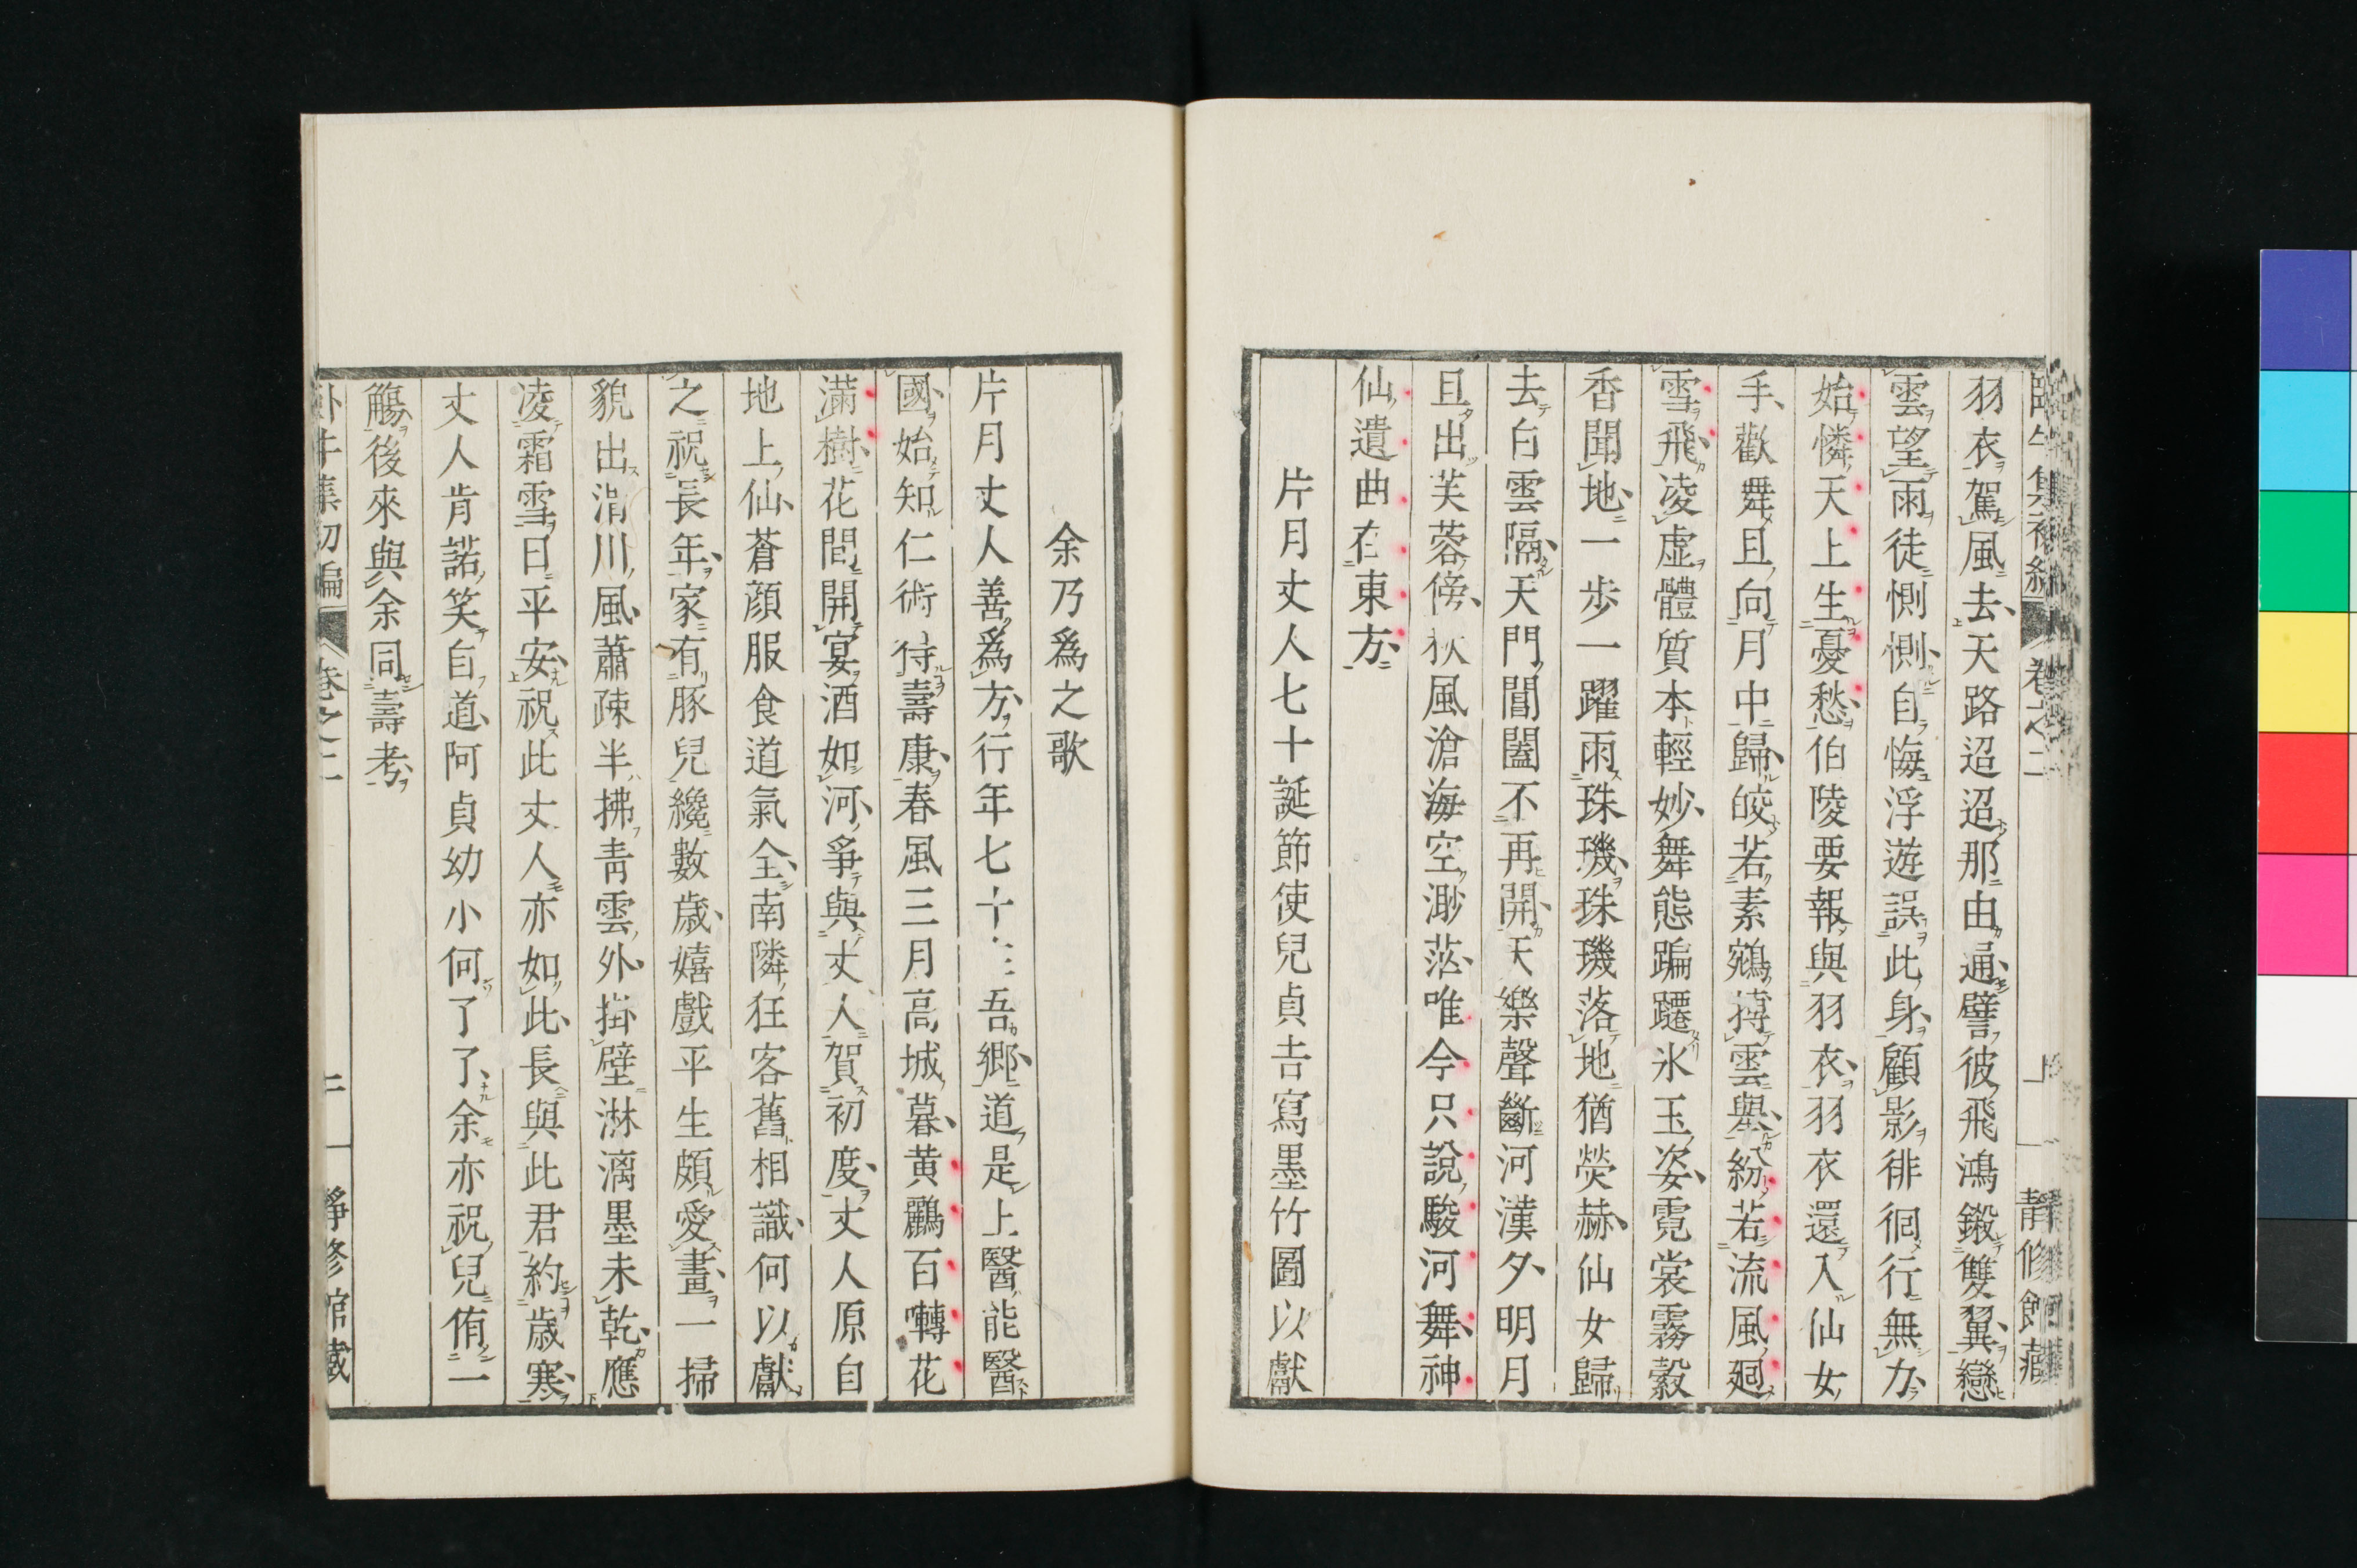 羽衣駕風去天路迢迢那由通譬彼飛鴻鎩雙翼戀
雲望雨徒惻惻自悔浮遊誤此身顧影徘徊行無力
始憐天上生憂愁伯陵要報與羽衣羽衣還入仙女
手歡舞且向月中歸皎若素鵷摶雲舉紛若流風廻
雪飛凌虛體質本輕妙舞態蹁躚氷玉姿霓裳霧縠
香聞地一步一躍雨珠璣珠璣落地猶熒赫仙女歸
去白雲隔天門閶闔不再開天樂聲斷河漢夕明月
且出芙蓉傍秋風滄海空渺茫唯今只說駿河舞神
仙遺曲在東方
片月丈人七十誕節使兒貞吉寫墨竹圖以獻
余乃爲之歌
片月丈人善爲方行年七十三吾鄉道是上醫能醫
國始知仁術待壽康春風三月高城暮黃鸝百囀花
滿樹花間開宴酒如河爭與丈人賀初度丈人原自
地上仙蒼顔服食道氣全南隣狂客舊相識何以獻
之祝長年家有豚兒纔數歲嬉戲平生頗愛畫一掃
貌出渭川風蕭疎半拂靑雲外掛壁淋漓墨未乾應
凌霜雪日平安祝此丈人亦如此長與此君約歲寒
丈人肯諾笑自道阿貞幼小何了了余亦祝兒侑一
觴後來與余同壽考
卷之二
靜修館藏